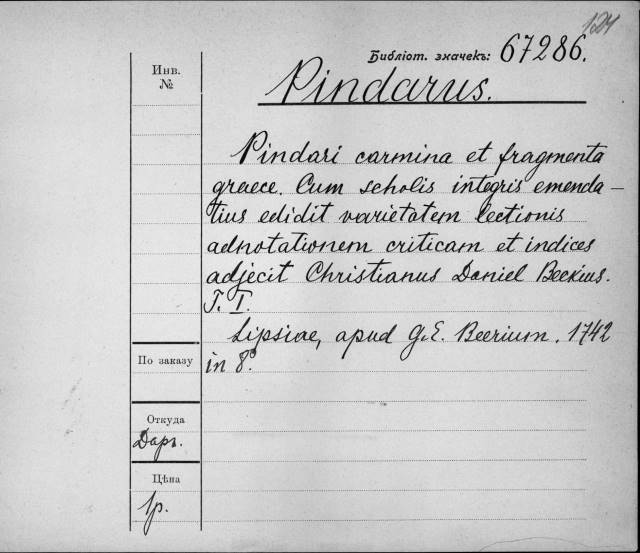 124
Библіот. значекъ: 67286.
Инв.
№
Pindarus.
Pindari carmina et fragmenta
graece. Cum scholis integris emenda-
tius edidit varietatem lectionis
adnotationem criticam et indices
adjecit Christianus Daniel Beckius.
T. I.
Lipsiae, apud G.E. Beerium. 1742
in 8°.
По заказу
Откуда
Даръ.
Цѣна
1р.